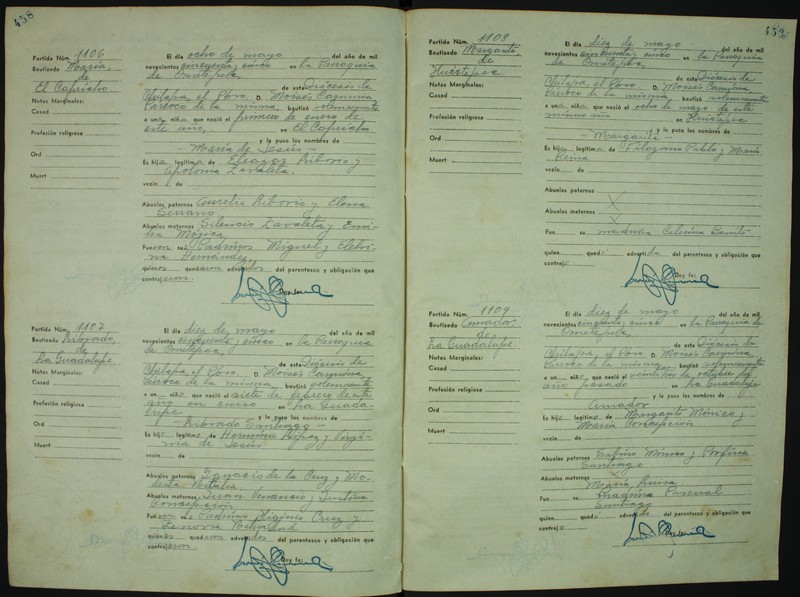 458
Partida Núm. 1106
Bautizado María
de
El Capricho
Notas Marginales:
Casad
Profesión religiosa
Ord
Muert
El día ocho de mayo del año de mil
novecientos cincuenta y cinco en la Parroquia
de Ometepec
de esta Diócesis de
Chilapa, el Pbro. D. Moisés Carmona
Párroco de la misma, bautizó solemnemente
a una niña que nació el primero de enero de
este año, en El Capricho
y le puso los nombres de
- María de Jesús -
Es hija legítima de Eleazar Liborio y
Apolonia Zavaleta.
vecin de
Abuelos paternos Aurelio Liborio y Elena
Serrano
Abuelos maternos Silencio Zavaleta y
Mójica
Fueron sus Padrinos Miguel y
Hernández
quienes quedaron advertidos del parentesco y obligación que
contrajeron.
Doy fe:
Partida Núm. 1107
Bautizado Librado,
de
La Guadalupe
Notas Marginales:
Casad
Profesión religiosa
Ord
Muert
El día diez de mayo del año de mil
novecientos cincuenta y cinco en la Parroquia
de Ometepec,
de esta Diócesis de
Chilapa, el Pbro. D. Moisés Carmona
Párroco de la misma, bautizó solemnemente
a un niño que nació el siete de febrero de este
año en curso en La Guada-
lupe y le puso los nombres de
- Librado Santiago -
Es hijo legítimo de y Virgi-
nia de Jesús
vecin de
Abuelos paternos Ignacio de la Cruz y Mo-
desta
Abuelos maternos Juan Venancio y Justina
Concepción
Fueron sus Padrinos Higinio Cruz y
Natividad
quienes quedaron advertidos del parentesco y obligación que
contrajeron.
Doy fe:
Partida Núm. 1108
Bautizado Margarita
de
Huixtepec
Notas Marginales:
Casad
Profesión religiosa
Ord
Muert
El día diez de mayo del año de mil
novecientos cincuenta y cinco en la Parroquia
de Ometepec,
de esta Diócesis de
Chilapa, el Pbro. D. Moisés Carmona
Párroco de la misma, bautizó solemnemente
a una niña que nació el ocho de mayo de este
mismo año en Huixtepec
y le puso los nombres de
- Margarita -
Es hija legítima de Pablo y María
Reina
vecin de
Abuelos paternos
Abuelos maternos
Fue su madrina Celerina Benito
quien quedó advertida del parentesco y obligación que
contrajo
Doy fe:
Partida Núm. 1109
Bautizado Amador
de
La Guadalupe
Notas Marginales:
Casad
Profesión religiosa
Ord
Muert
El día diez de mayo del año de mil
novecientos cincuenta y cinco en la Parroquia de
Ometepec,
de esta Diócesis de
Chilapa, el Pbro. D. Moisés Carmona
Párroco de la misma, bautizó solemnemente
a un niño que nació el veintiuno de octubre del
año pasado en La Guadalupe
y le puso los nombres de
Amador
Es hijo legítimo de Margarito Mónico y
María Concepción
vecin de
Abuelos paternos Sabino Mónico y Porfiria
Santiago
Abuelos maternos
María Luisa
Fue su madrina Pascual
Santiago
quien quedó advertido del parentesco y obligación que
contrajo
Doy fe: